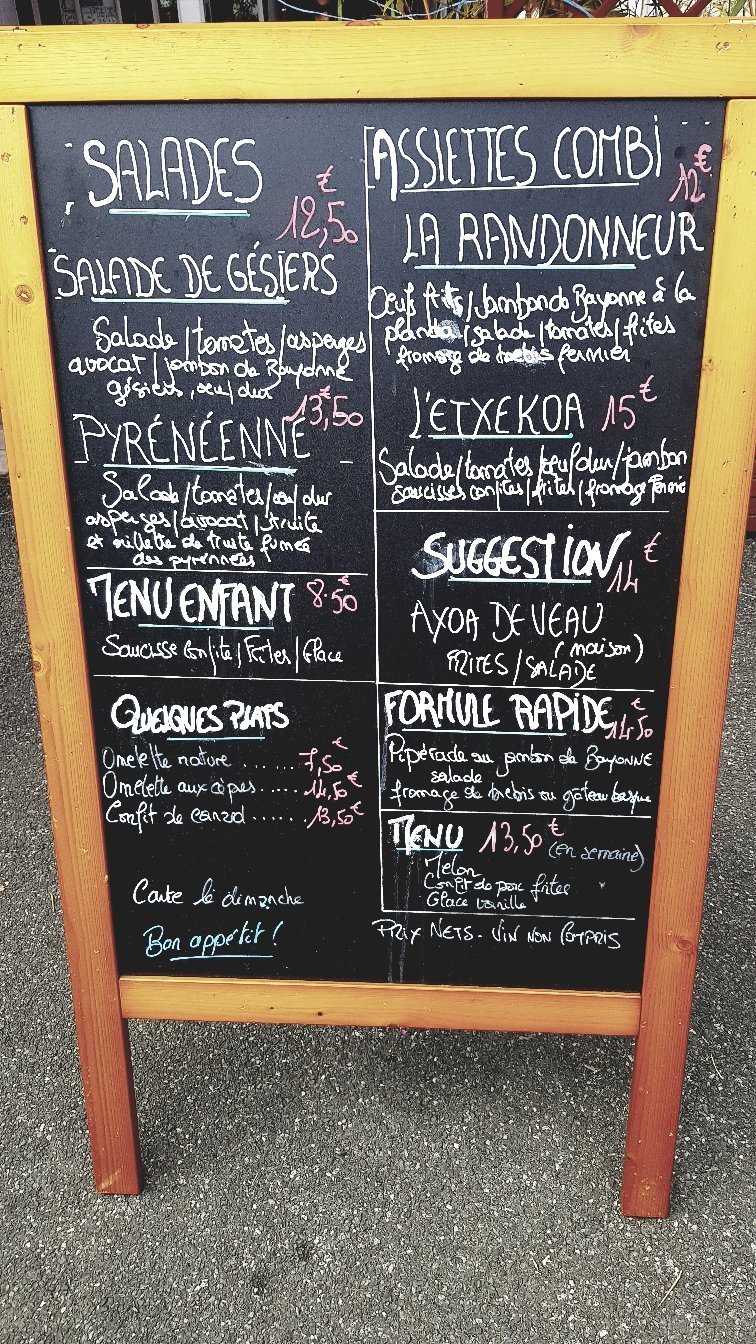 SALADES
12,50 €
SALADE DE GÉSIERS
Salade / tomates / asperges
avocat / jambon de Bayonne
gésiers, oeuf dur
13,50 €
PYRÉNÉENNE
Salade / tomates / oeuf dur
asperges / avocat / truite
et rillette de truite fumée
des pyrénnées
MENU ENFANT 8.50 €
Saucisse confite / Frites / Glace
QUELQUES PLATS
Omelette nature ...... 7,50 €
Omelette aux cèpes ..... 14,50 €
Confit de canard ...... 13,50 €
Carte le dimanche
Bon appétit !
ASSIETTES COMBI
12 €
LA RANDONNEUR
Oeufs frits / Jambon de Bayonne à la
plancha / salade / tomates / frites
fromage de brebis fermier
L'ETXEKOA 15 €
Salade / tomates / oeuf dur / jambon
saucisses confites / frites / fromage fermier
SUGGESTION 14 €
AXOA DE VEAU
(maison)
FRITES / SALADE
FORMULE RAPIDE 14,50 €
Pipérade au jambon de BAYONNE
salade
fromage de brebis ou gâteau basque
MENU 13,50 € (en semaine)
Melon
Confit de porc frites
Glace vanille
PRIX NETS - VIN NON COMPRIS